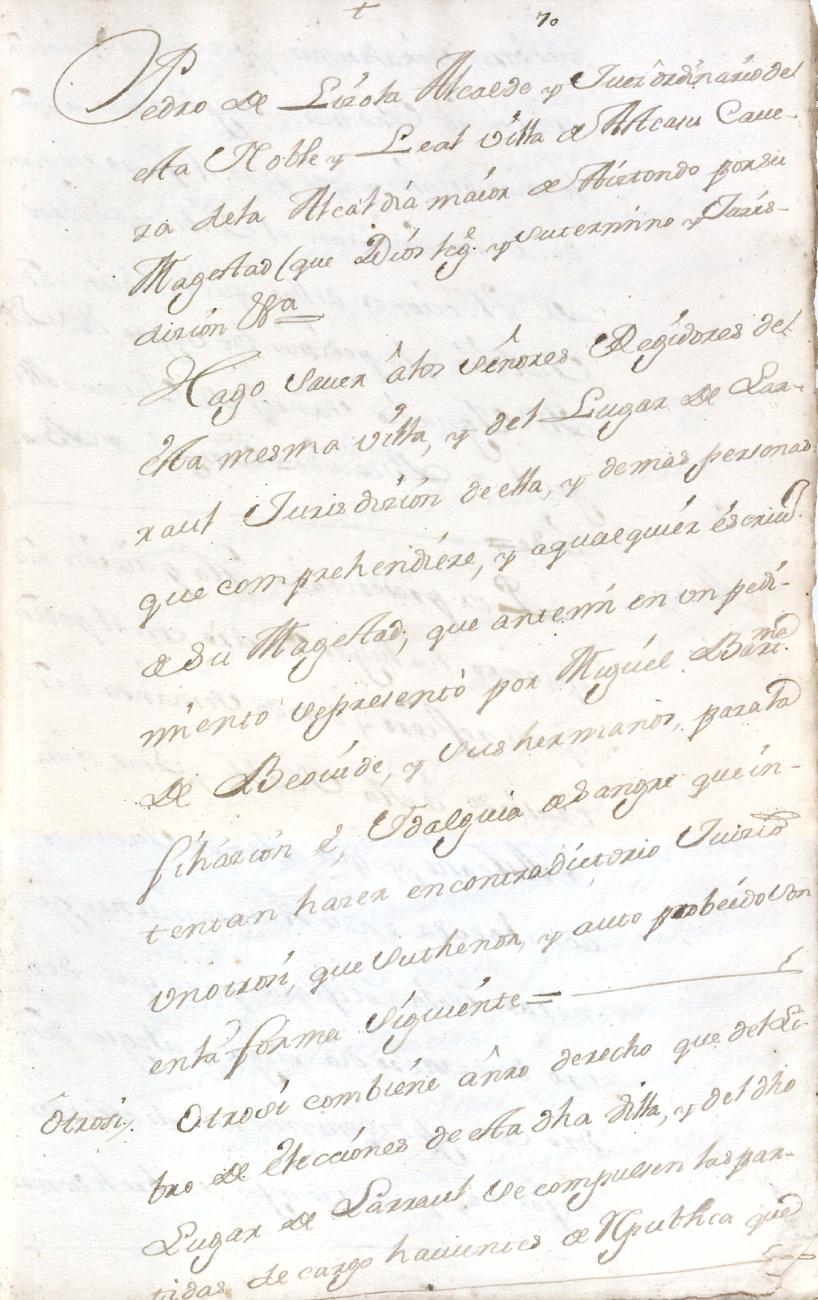 †
70
Pedro de Lizola Alcalde y Juez ôrdinário del
esta Noble y Leal villa de Alcasu Cave-
za dela Alcaldia maior de Aiztondo por su
Magestad (que Diós lege. y su termino y Juris-
dizión &ª
Hago saver âlos señores Regidores del
esta mesma villa, y del Lugar de Lar-
raul Jurisdizión de ella, y demas personas
que comprehendiére, y aqualquiér éscriuº.
de su Magestad, que antemi en un pedi-
miento represento por Miguél Barme
De Beoiude, y sus hermanos, para la
filiázión é, Ydalguia de Sangre que in-
tentan hazer en contradictorio Juizio
un otrosi, que su thenor, y auto probeido son
enla forma siguiénte =
ôtrosi. Otrosi combiéne ânro derecho que del Li-
bro de Elecciónes de esta dha villa, y del dho
Lugar de Larraul se compulsen las par-
tidas de cargo havientes de Republica que